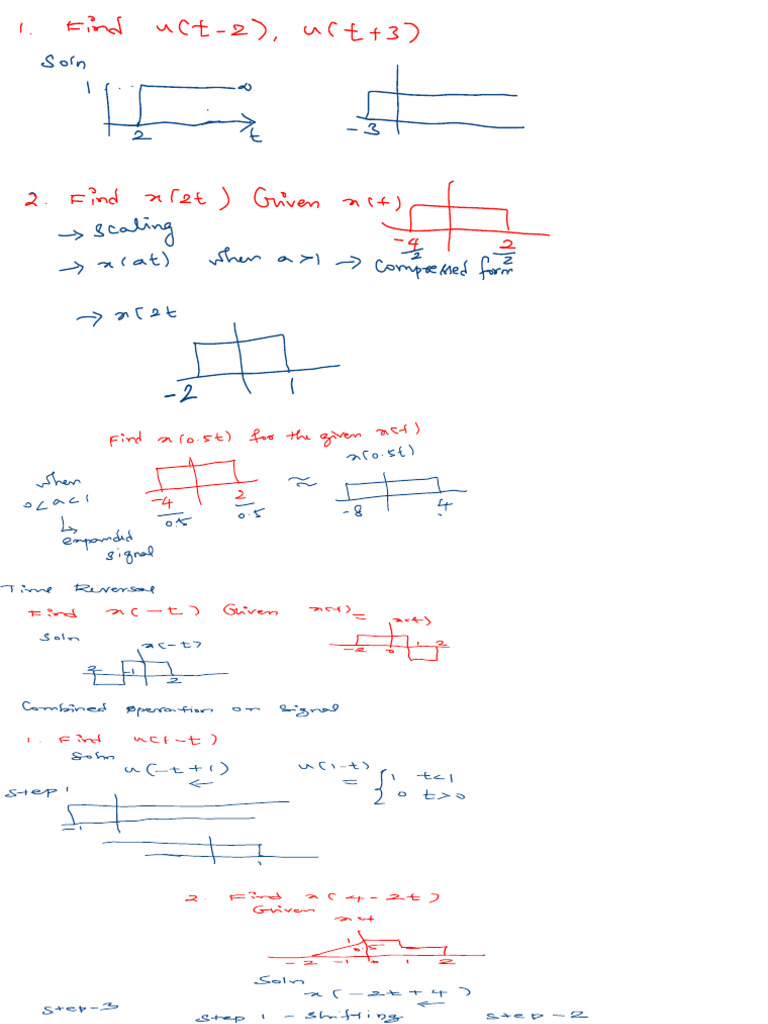 1. Find u(t-2), u(t+3)
Soln
1 ∞
2 t
-3
2. Find x(2t) Given x(t)
-4/2 2/2
→ scaling
→ x(at) when a>1 → compressed form
→ x(2t
-2 1
Find x(0.5t) for the given x(t)
x(0.5t)
when
0<a<1
↳ expanded
signal
-4/0.5 2/0.5 ≈ -8 4
Time Reversal
Find x(-t) Given x(t)=
x(t)
-2 0 1 2
Soln
x(-t)
-2 -1 2
Combined operation on signal
1. Find u(1-t)
Soln
u(-t+1) ←
u(1-t) = { 1 t<1
0 t>0
Step 1
-1
1
2. Find x(4-2t)
Given
x4
1 0.5
-2 -1 0 1 2
Soln
x(-2t+4)
←
Step-3 Step 1 - Shifting Step-2